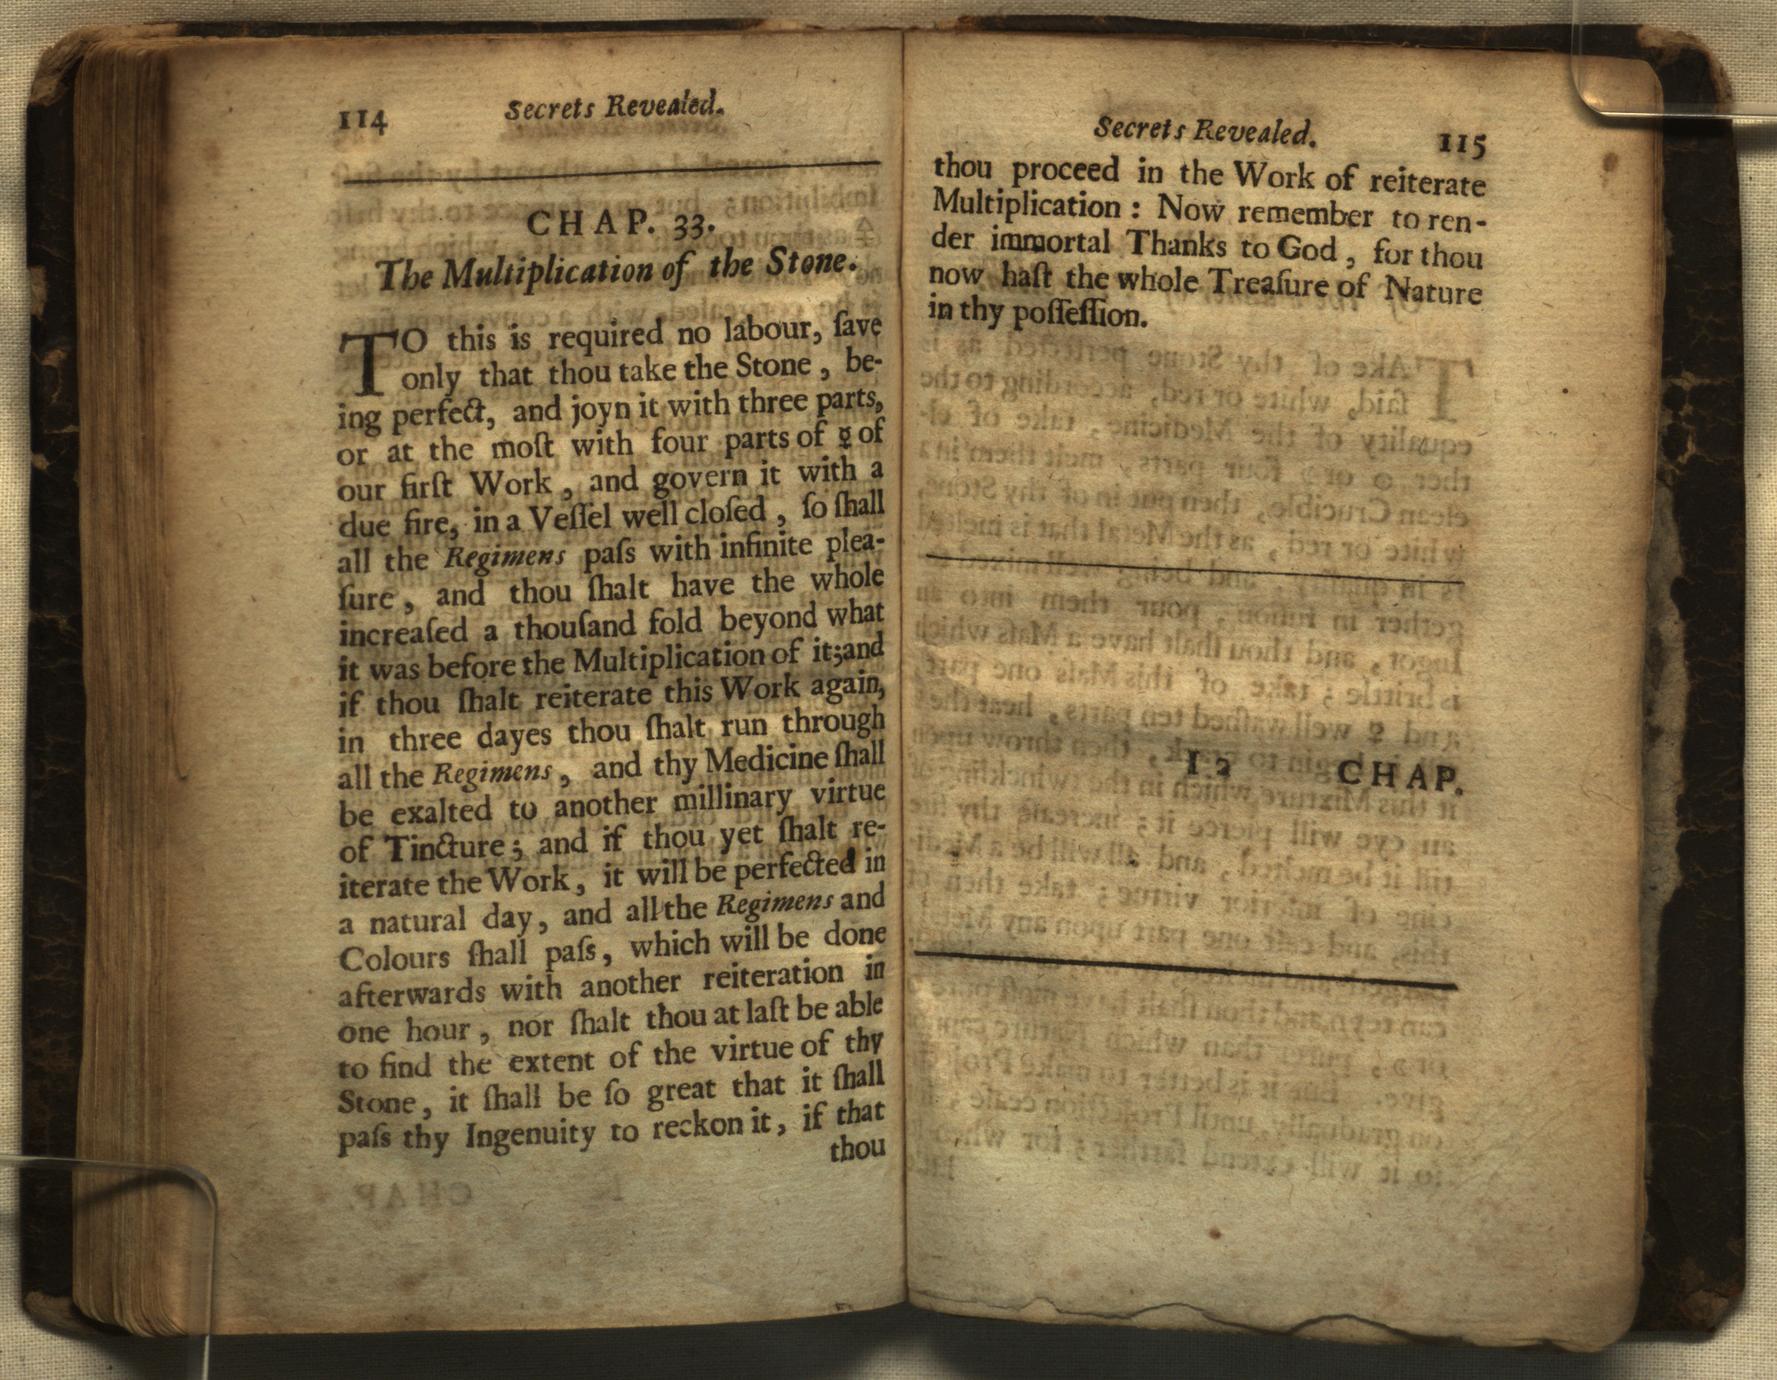 114 Secrets Revealed.
CHAP. 33.
The Multiplication of the Stone.
TO this is required no labour, ſave
only that thou take the Stone, be-
ing perfect, and joyn it with three parts,
or at the moſt with four parts of ☿ of
our firſt Work, and govern it with a
due fire, in a Veſſel well cloſed, ſo ſhall
all the Regimens paſs with infinite plea-
ſure, and thou ſhalt have the whole
increaſed a thouſand fold beyond what
it was before the Multiplication of it; and
if thou ſhalt reiterate this Work again,
in three dayes thou ſhalt run through
all the Regimens, and thy Medicine ſhall
be exalted to another millinary virtue
of Tincture; and if thou yet ſhalt re-
iterate the Work, it will be perfected in
a natural day, and all the Regimens and
Colours ſhall paſs, which will be done
afterwards with another reiteration in
one hour, nor ſhalt thou at laſt be able
to find the extent of the virtue of thy
Stone, it ſhall be ſo great that it ſhall
paſs thy Ingenuity to reckon it, if that
thou
Secrets Revealed. 115
thou proceed in the Work of reiterate
Multiplication: Now remember to ren-
der immortal Thanks to God, for thou
now haſt the whole Treaſure of Nature
in thy poſſeſſion.
I 2 CHAP.